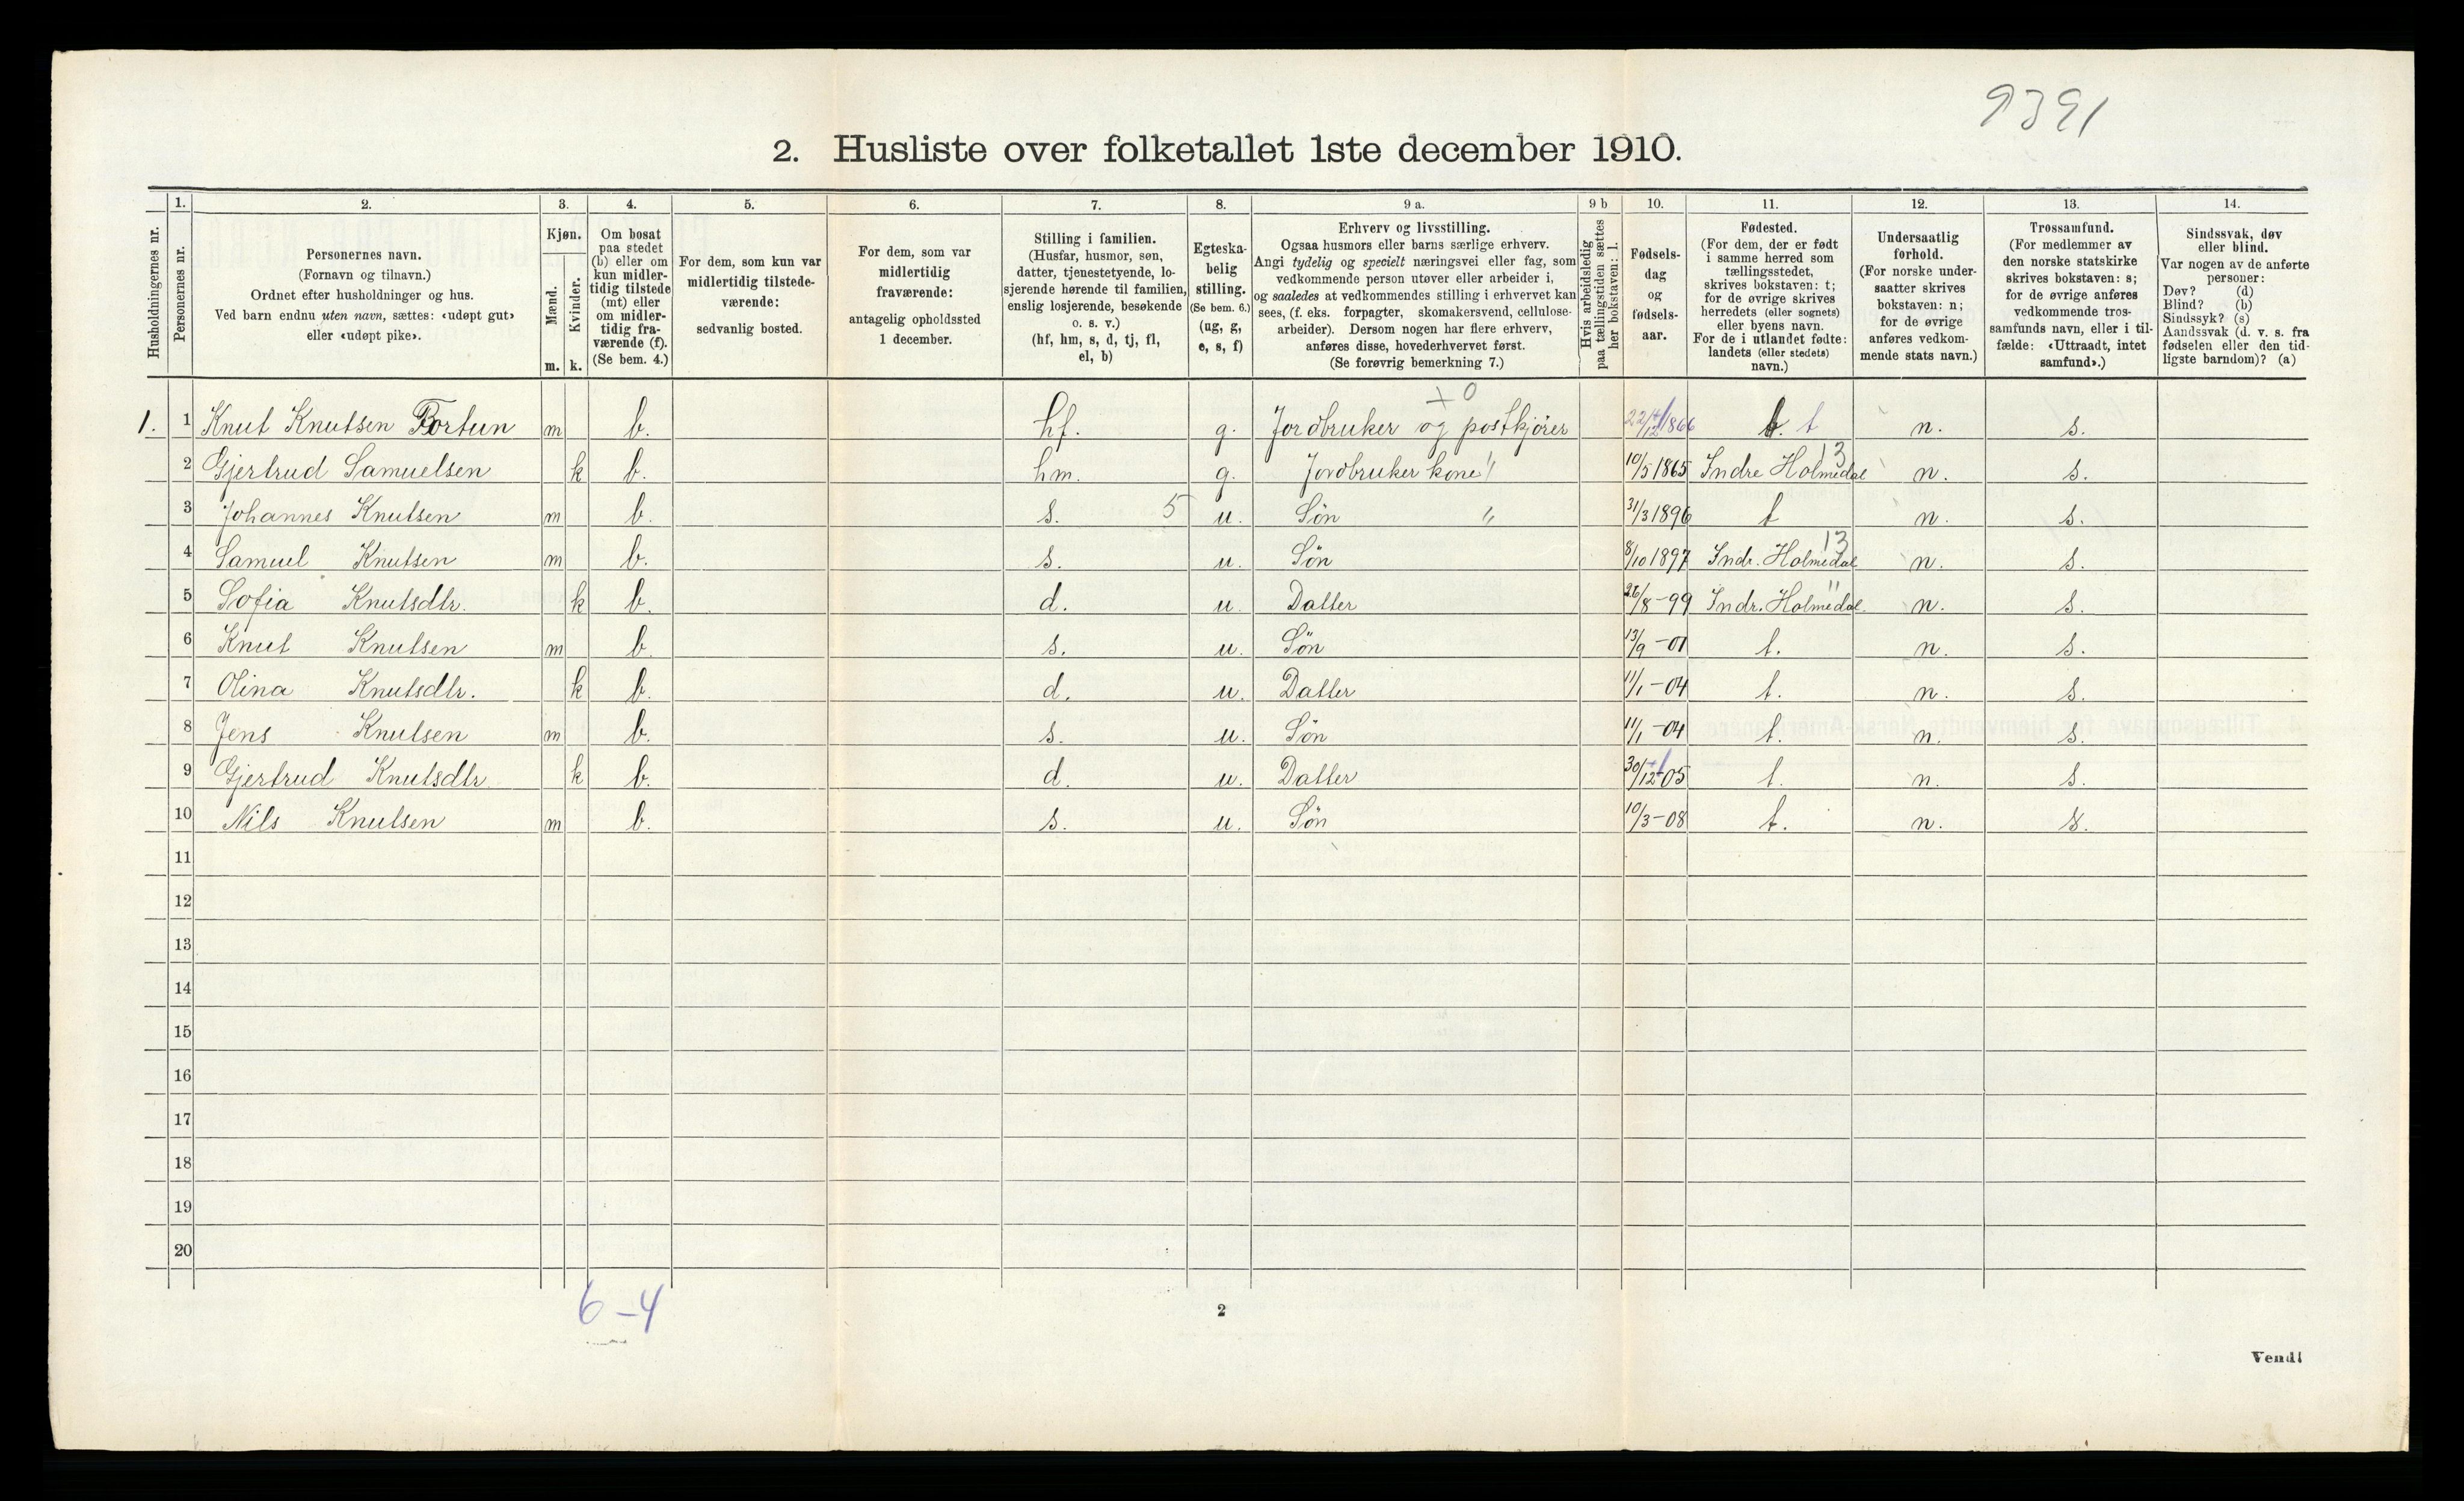 9391
2. Husliste over folketallet 1ste december 1910.
Husholdningernes nr.
1. Personernes nr.
2. Personernes navn. (Fornavn og tilnavn.) Ordnet efter husholdninger og hus. Ved barn endnu uten navn, sættes: «udøpt gut» eller «udøpt pike».
3. Kjøn. Mænd. m. Kvinder. k.
4. Om bosat paa stedet (b) eller om kun midler-tidig tilstede (mt) eller om midler-tidig fra-værende (f). (Se bem. 4.)
5. For dem, som kun var midlertidig tilstede-værende: sedvanlig bosted.
6. For dem, som var midlertidig fraværende: antagelig opholdssted 1 december.
7. Stilling i familien. (Husfar, husmor, søn, datter, tjenestetyende, lo-sjerende hørende til familien, enslig losjerende, besøkende o. s. v.) (hf, hm, s, d, tj, fl, el, b)
8. Egteska-belig stilling. (Se bem. 6.) (ug, g, e, s, f)
9 a. Erhverv og livsstilling. Ogsaa husmors eller barns særlige erhverv. Angi tydelig og specielt næringsvei eller fag, som vedkommende person utøver eller arbeider i, og saaledes at vedkommendes stilling i erhvervet kan sees, (f. eks. forpagter, skomakersvend, cellulose-arbeider). Dersom nogen har flere erhverv, anføres disse, hovederhvervet først. (Se forøvrig bemerkning 7.)
9 b Hvis arbeidsledig paa tællingstiden sættes her bokstaven: l.
10. Fødsels-dag og fødsels-aar.
11. Fødested. (For dem, der er født i samme herred som tællingsstedet, skrives bokstaven: t; for de øvrige skrives herredets (eller sognets) eller byens navn. For de i utlandet fødte: landets (eller stedets) navn.)
12. Undersaatlig forhold. (For norske under-saatter skrives bokstaven: n; for de øvrige anføres vedkom-mende stats navn.)
13. Trossamfund. (For medlemmer av den norske statskirke skrives bokstaven: s; for de øvrige anføres vedkommende tros-samfunds navn, eller i til-fælde: «Uttraadt, intet samfund».)
14. Sindssvak, døv eller blind. Var nogen av de anførte personer: Døv? (d) Blind? (b) Sindssyk? (s) Aandssvak (d. v. s. fra fødselen eller den tid-ligste barndom)? (a)
+ 0
1. 1 Knut Knutsen Fortun m b. hf. g. Jordbruker og postkjører 22/12 1866 t. t n. s.
2 Gjertrud Samuelsen k b. hm. g. Jordbruker kone " 10/5 1865 Indre Holmedal 13 n. s.
3 Johannes Knutsen m b. s. 5 u. Søn " 31/3 1896 t n. s.
4 Samuel Knutsen m b. s. u. Søn 8/10 1897 Indr. Holmedal 13 n. s.
5 Sofia Knutsdtr. k b. d. u. Datter 26/8-99 Indr. Holmedal " n. s.
6 Knut Knutsen m b. s. u. Søn 13/9-01 t. n. s.
7 Olina Knutsdtr. k b. d. u. Datter 11/1-04 t. n. s.
8 Jens Knutsen m b. s. u. Søn 11/1-04 t. n. s.
9 Gjertrud Knutsdtr. k b. d. u. Datter 30/12-05 t. n. s.
10 Nils Knutsen m b. s. u. Søn 10/3-08 t. n. s.
11
12
13
14
15
16
17
18
19
20
6-4
2
Vend!